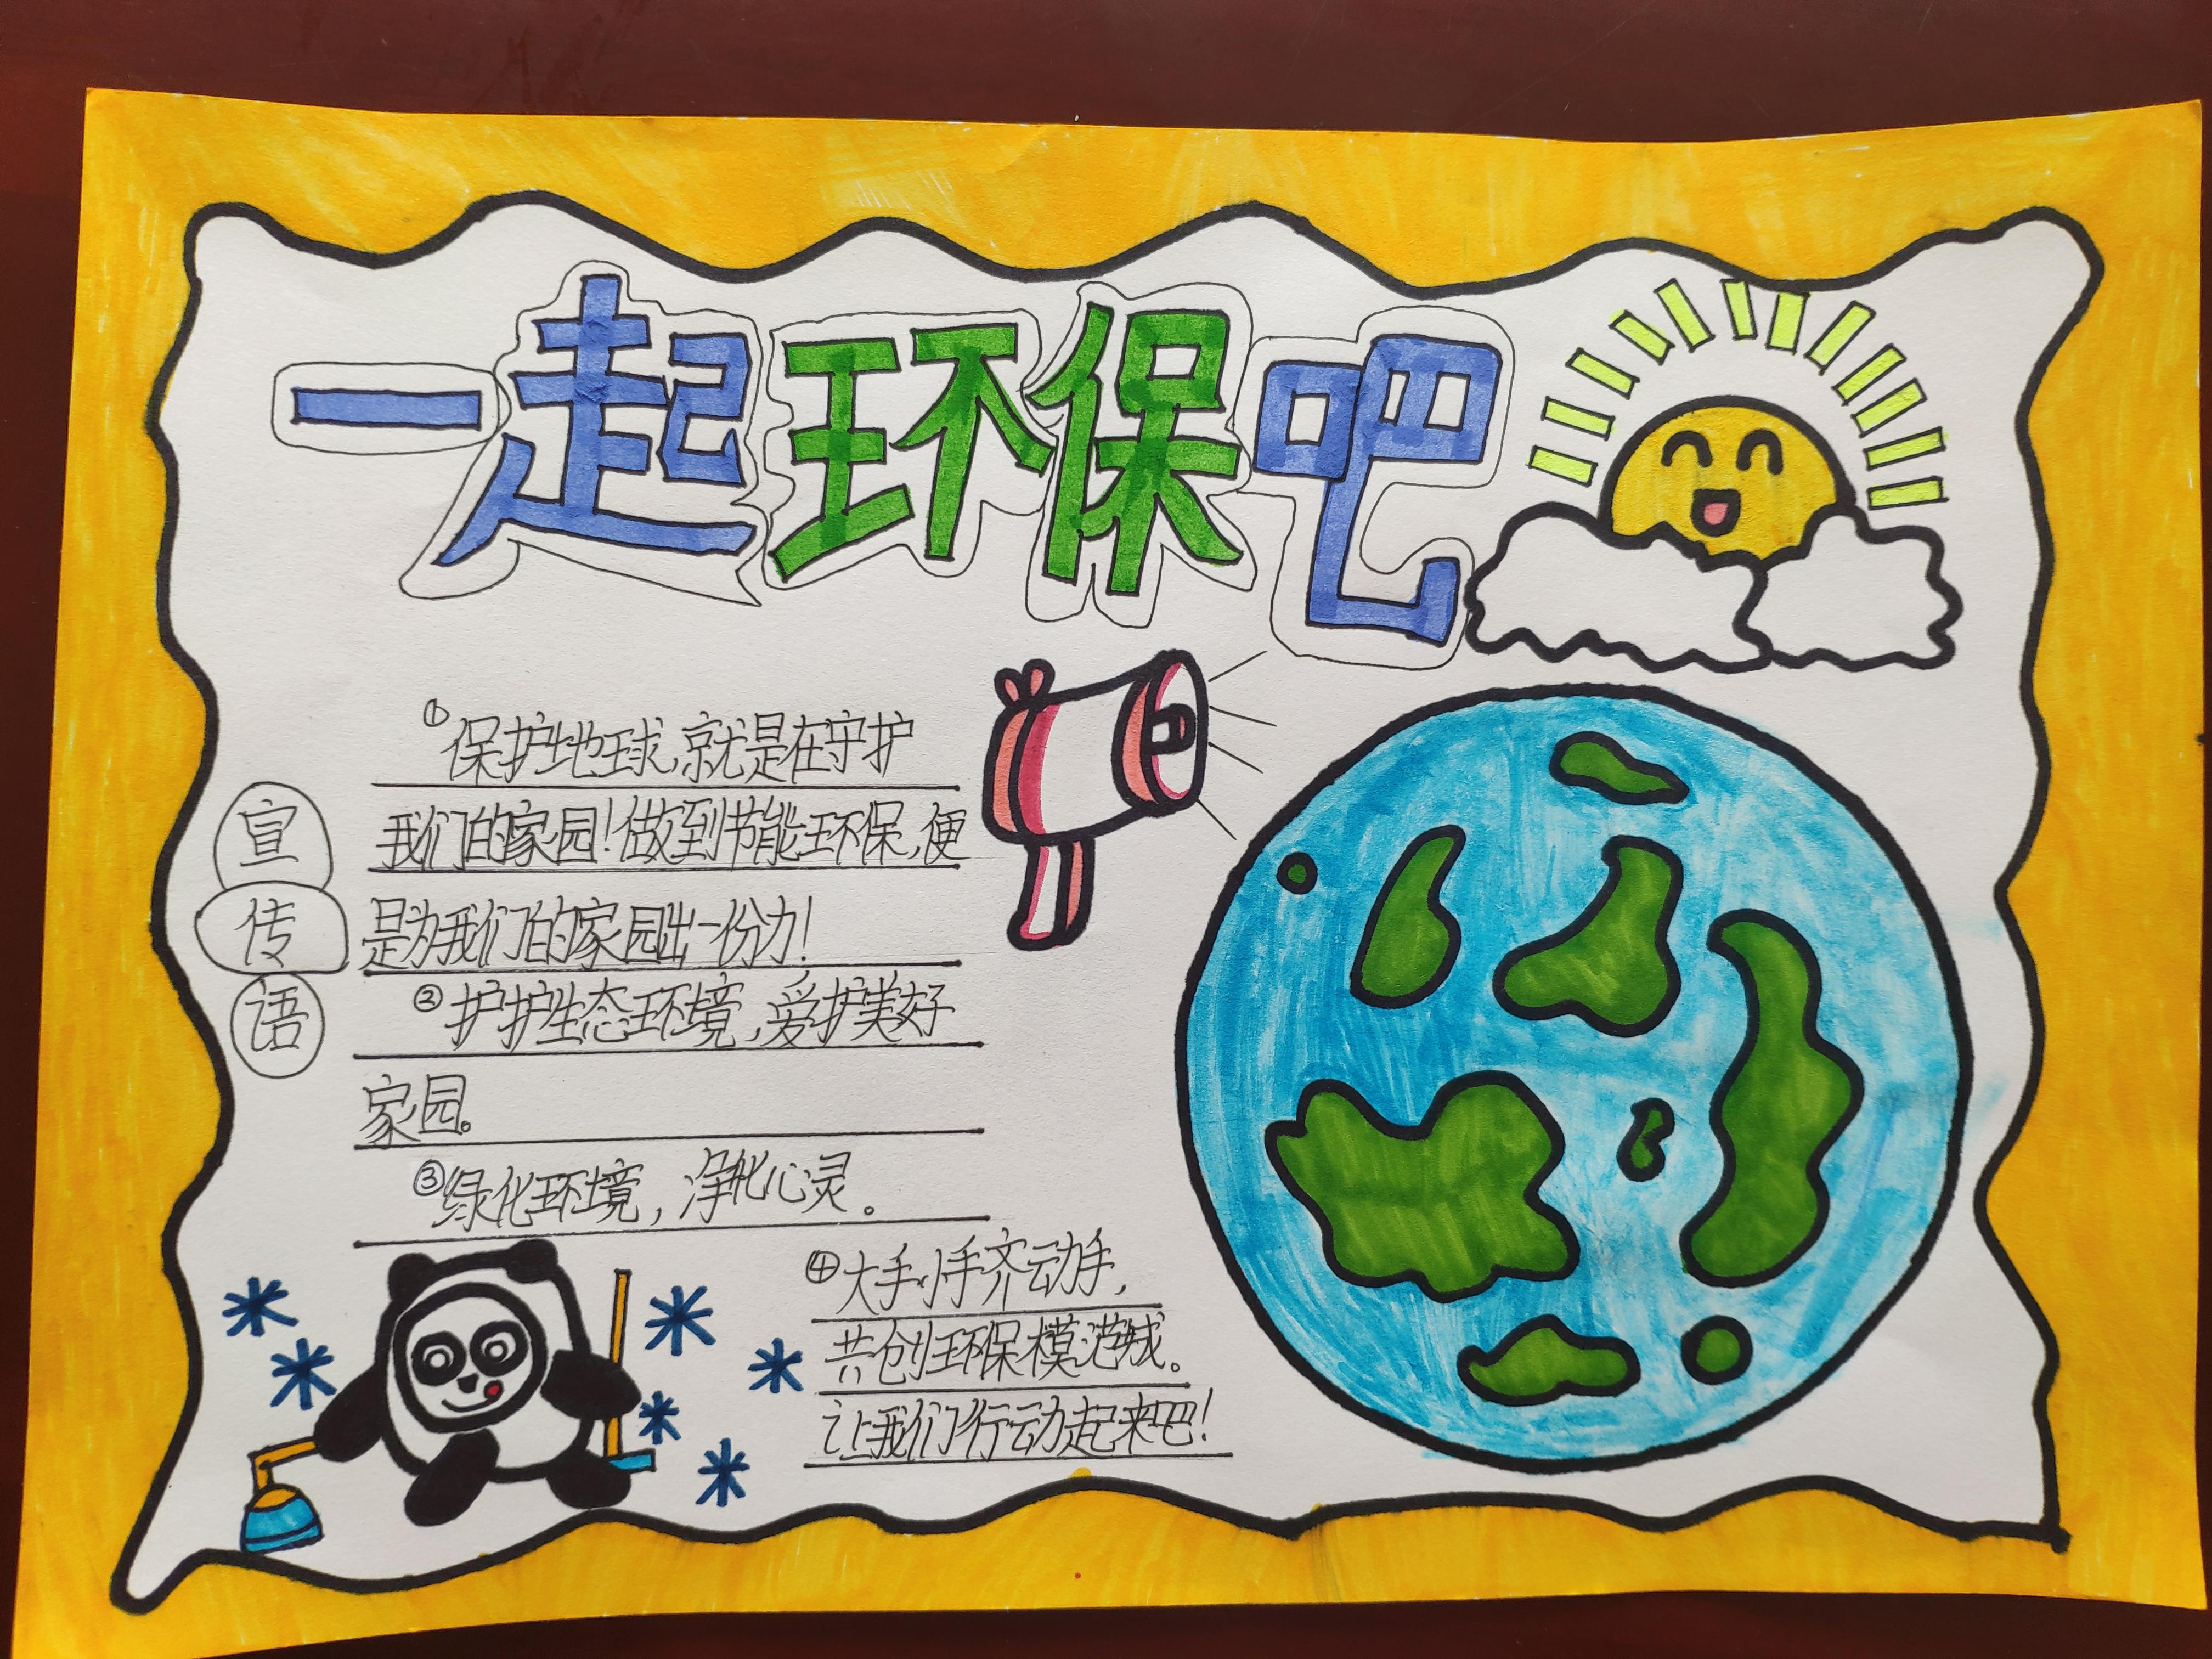 一起环保吧
宣传语
①保护地球,就是在守护
我们的家园!做到节能环保,便
是为我们的家园出一份力!
②护护生态环境,爱护美好
家园。
③绿化环境,净化心灵。
④大手小手齐动手,
共创环保模范城。
让我们行动起来吧!